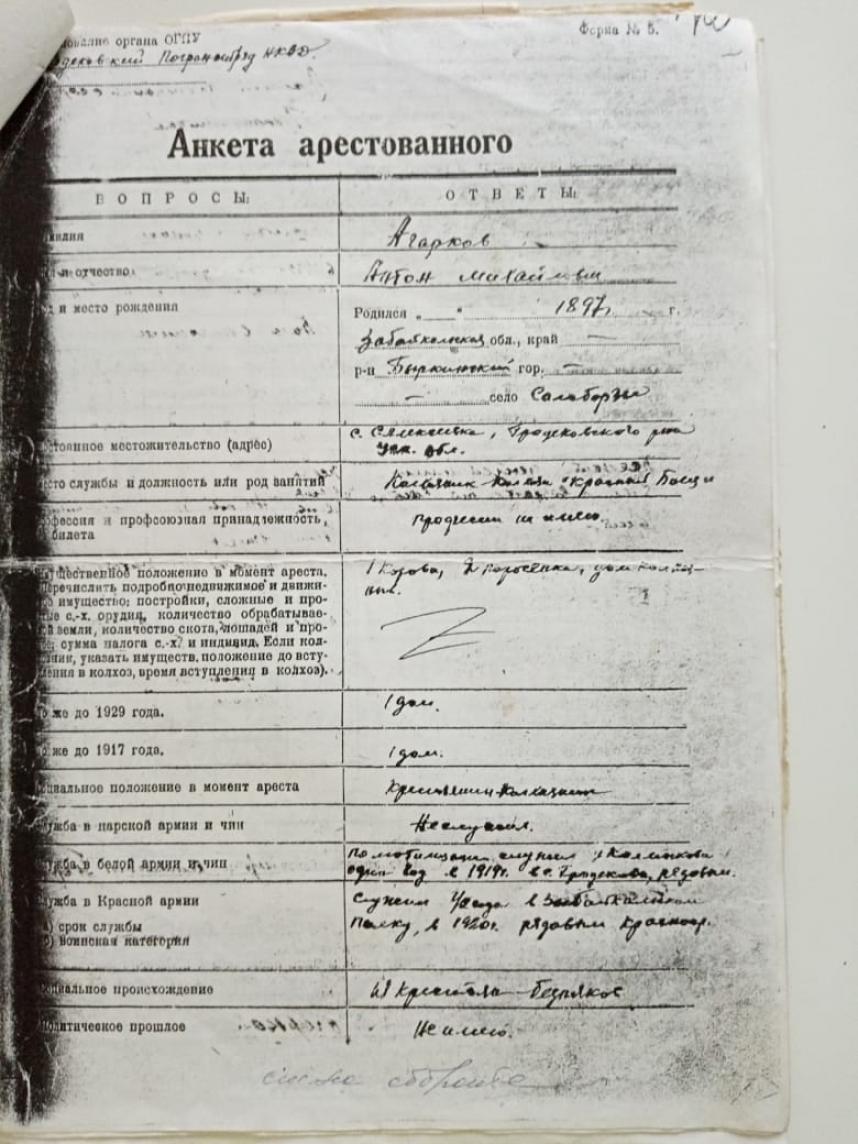 ование органа ОГПУ
Форма № 5.
Погранотряд НКВД.
Анкета арестованного
ВОПРОСЫ:
ОТВЕТЫ:
милия
Агарков
и отчество
Антон Михайлович
и место рождения
Родился „ “ 1897 г.
Забайкальская обл., край —
р-н Быркинский гор. —
— село
стоянное местожительство (адрес)
с. Гродековского р-на
Уск. обл.
сто службы и должность или род занятий
Колхозник Колхоза "Красный Боец"
офессия и профсоюзная принадлежность,
билета
Профессии не имею.
ущественное положение в момент ареста.
Перечислить подробно недвижимое и движи-
имущество: постройки, сложные и про-
ые с.-х. орудия, количество обрабатывае-
й земли, количество скота, лошадей и про-
сумма налога с.-х. и индивид. Если кол-
ник, указать имуществ. положение до всту-
ления в колхоз, время вступления в колхоз).
1 Корова, 2 поросенка, дом
о же до 1929 года.
1 дом.
о же до 1917 года.
1 дом.
оциальное положение в момент ареста
Крестьянин-Колхозник
лужба в царской армии и чин
Не служил.
лужба в белой армии и чин
По мобилизации служил у Калмыкова
один год в 1919г. в с. Гродеково, рядовым.
лужба в Красной армии
а) срок службы
б) воинская категория
Служил в Забайкальском
Полку, в 1920г. рядовым Красноар.
оциальное происхождение
Из Крестьян бедняков
Политическое прошлое
Не имею.